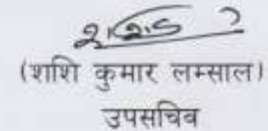 (शशि कुमार लम्साल)
उपसचिव